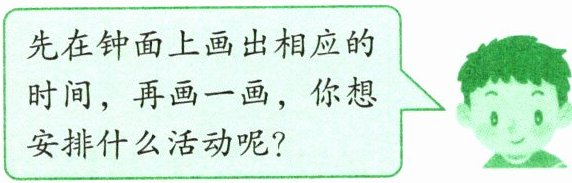 先在钟面上画出相应的
时间，再画一画，你想
安排什么活动呢？